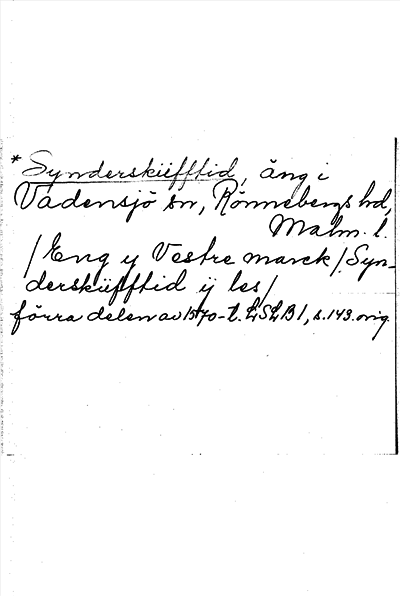 *Synderskiifftid, äng i
Vadensjö sn, Rönnebergs hd,
Malm. l.
/Eng y Vestre marck/Syn-
derskiifftid ÿ les/
förra delen av 1570-t. LSLB1, s. 143. orig.